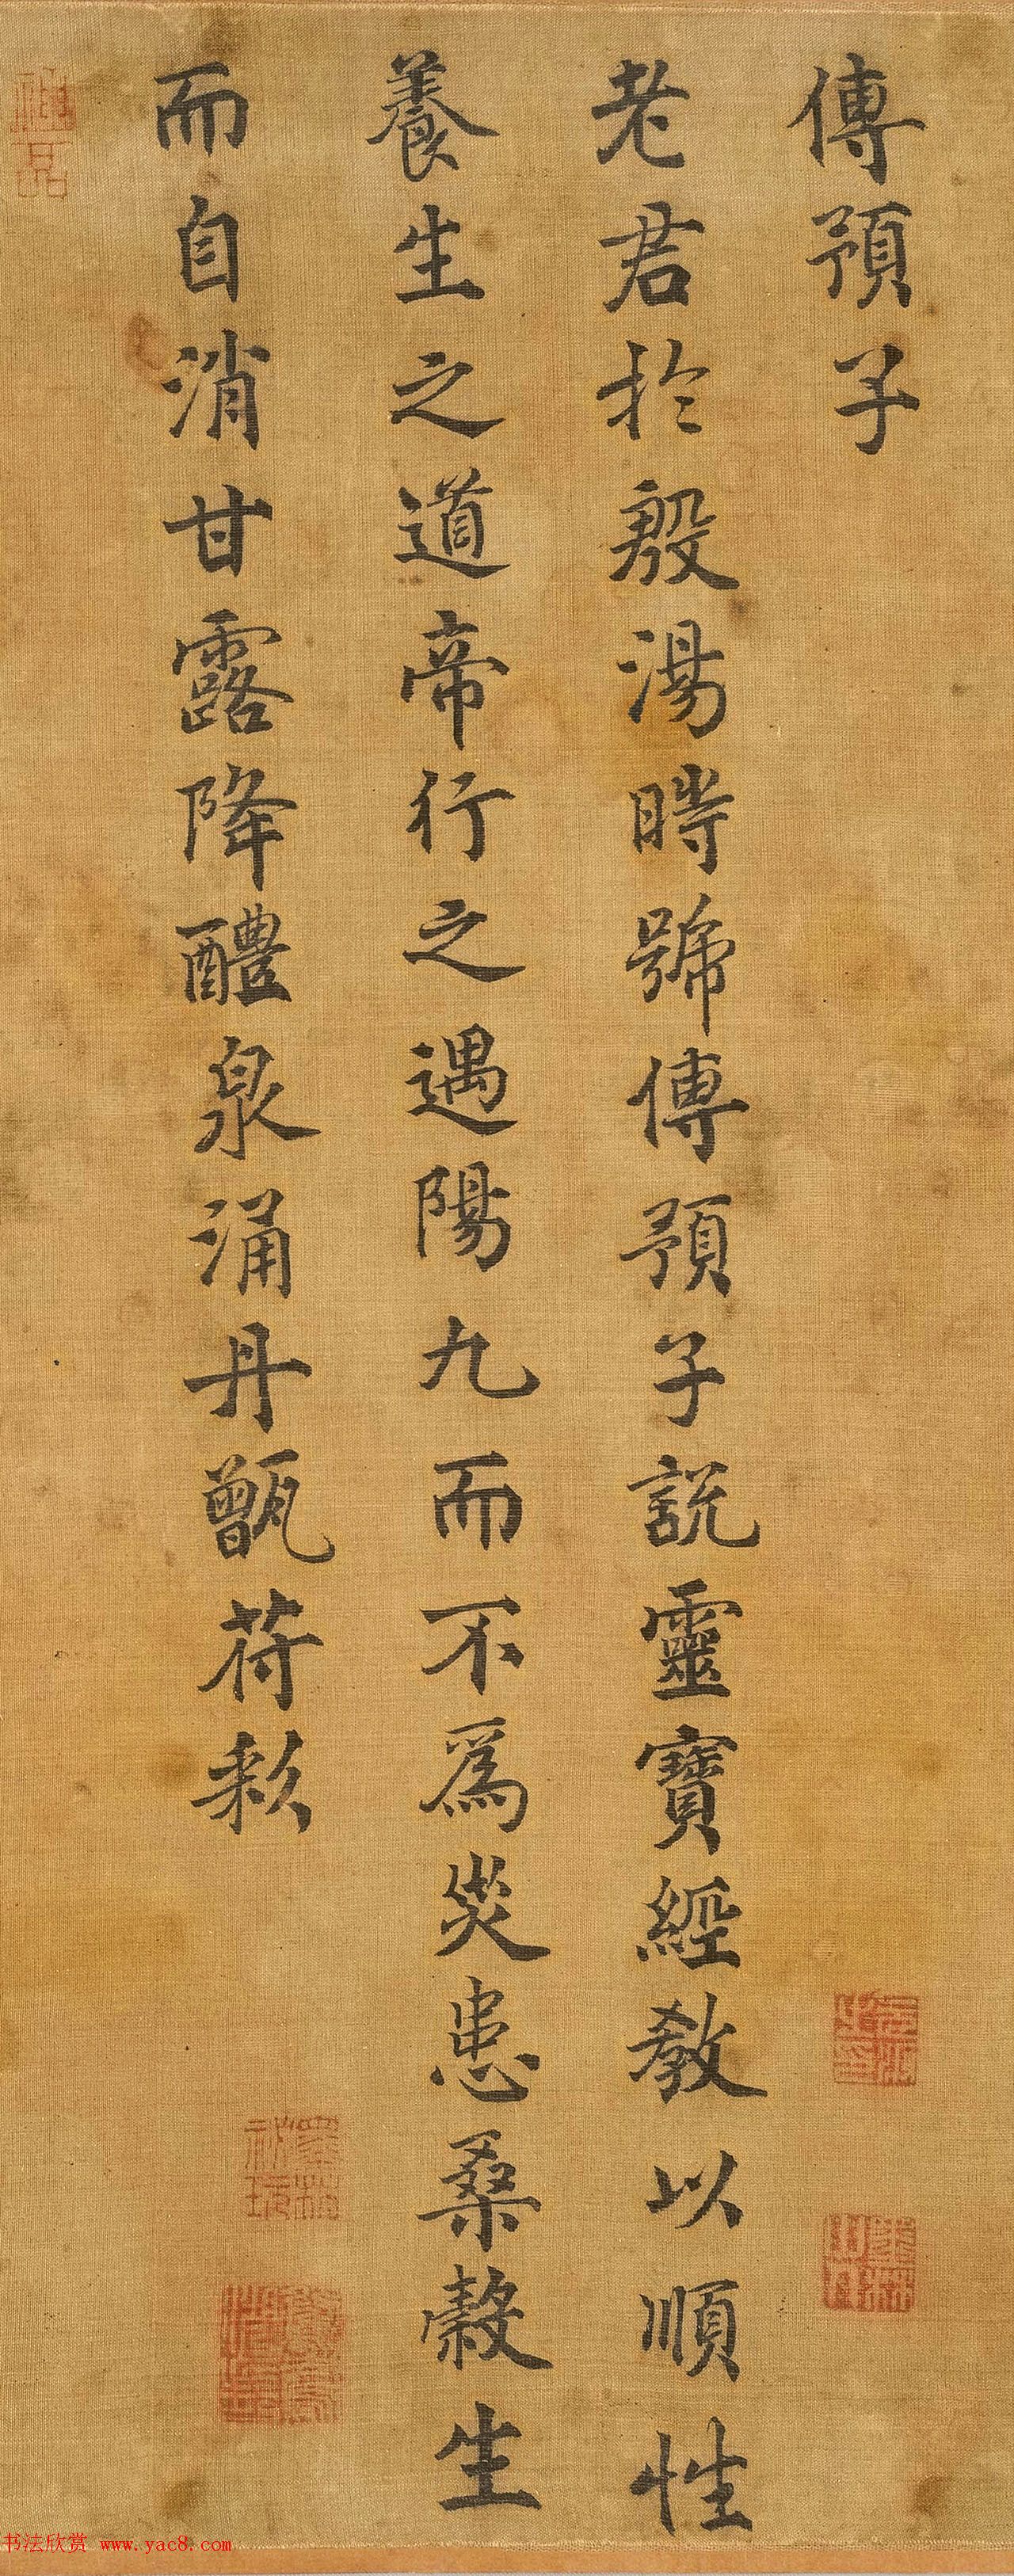 傅預子
老君於殷湯時號傅預子説靈寶經教以順性
養生之道帝行之遇陽九而不爲災患桑穀生
而自消甘露降醴泉涌丹甑荷
书法欣赏 www.yac8.com